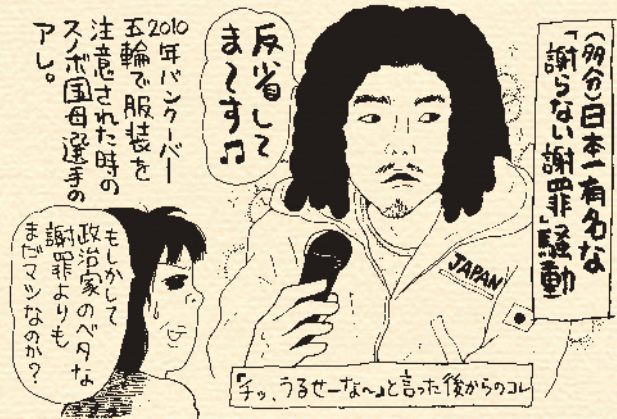 (多分)日本一有名な
「謝らない謝罪」騒動
反省して
ま〜す♫
2010年バンクーバー
五輪で服装を
注意された時の
スノボ国母選手の
アレ。
JAPAN
もしかして
政治家のベタな
謝罪よりも
まだマシなのか?
「チッ、うるせーな〜」と言った後からのコレ